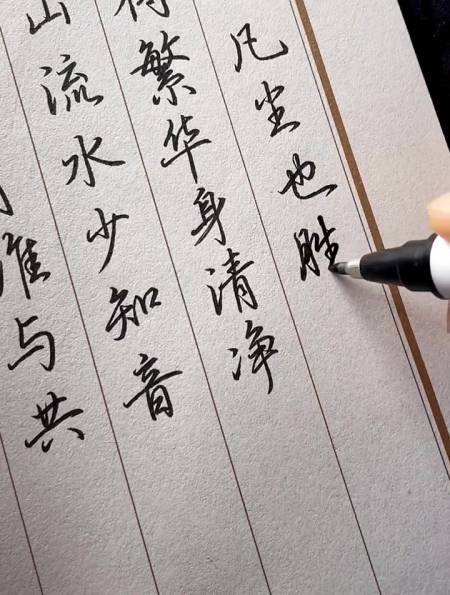 谁与共
山流水少知音
繁华身清净
凡尘也胜